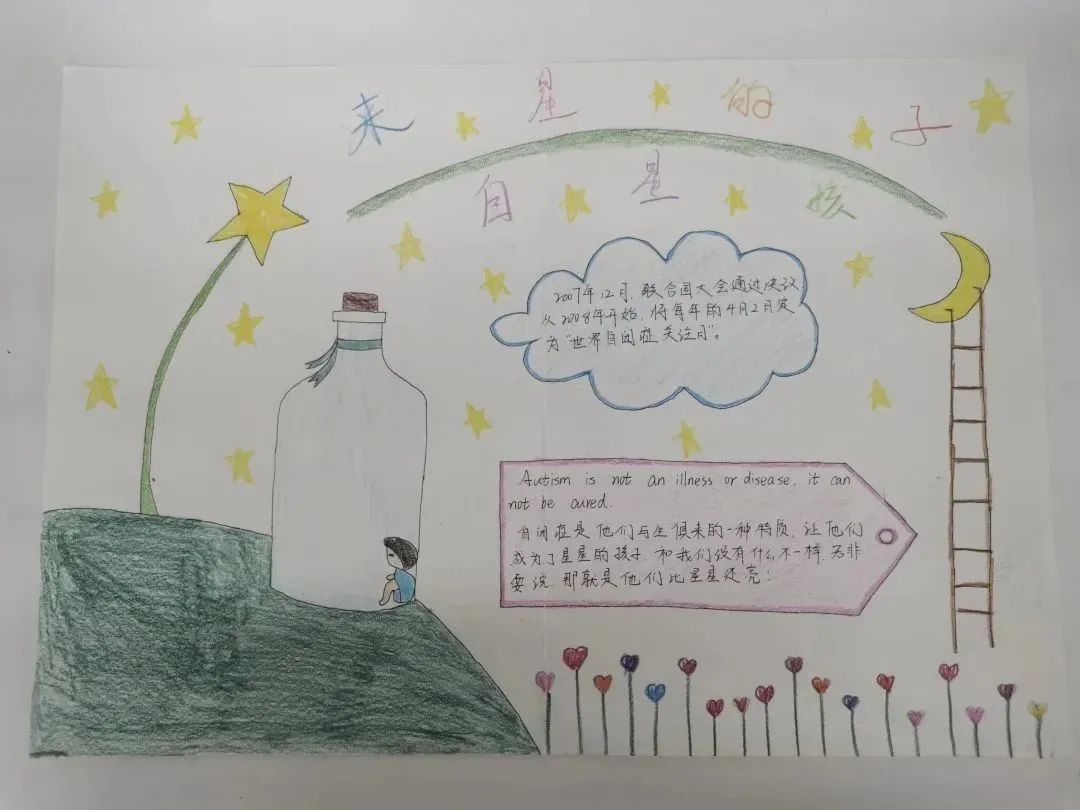 来自星星的孩子
2007年12月，联合国大会通过决议
从2008年开始，将每年的4月2日定
为“世界自闭症关注日”。
Autism is not an illness or disease, it can
not be cured.
自闭症是他们与生俱来的一种特质，让他们
成为了星星的孩子，和我们没有什么不一样，若非
要说，那就是他们比星星还亮！